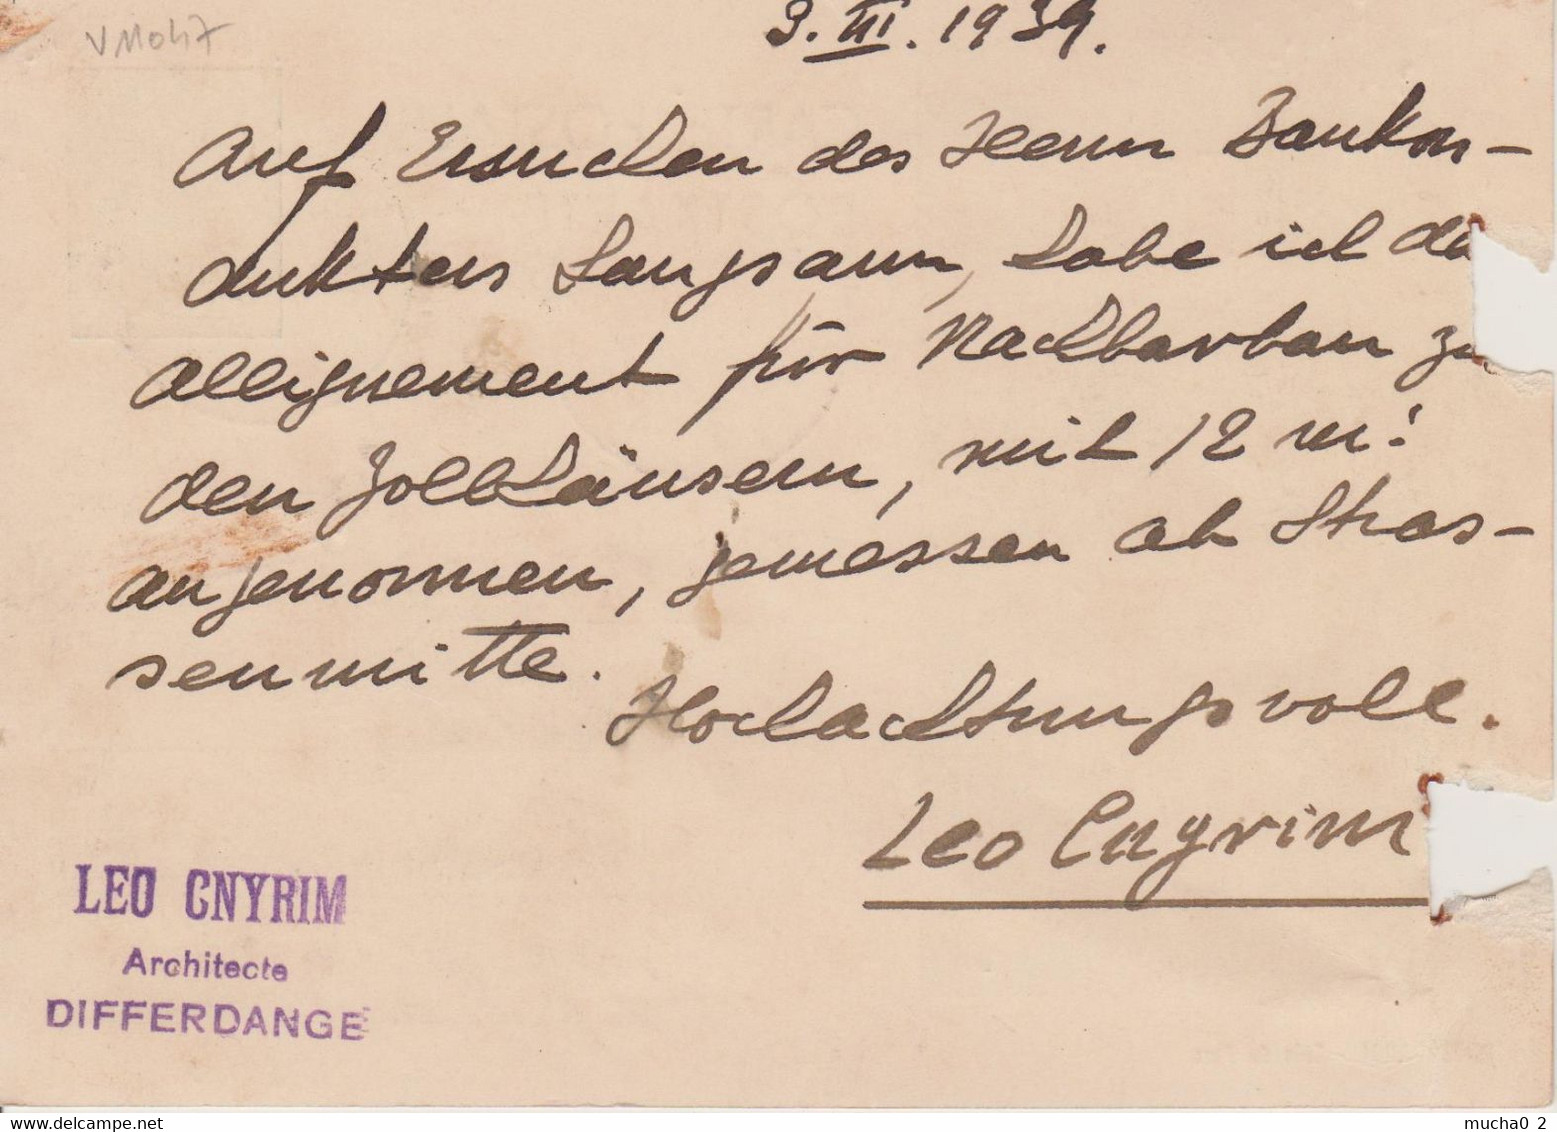 VM047
3. III. 1939.
Auf Ersuchen des Herrn Baukon-
dukteurs Langsam, habe ich da
Allignement für Nachbarbau zu
den Zollhäusern, mit 12 m!
angenommen, gemessen ab Stras-
senmitte.
Hochachtungsvoll.
Leo Cnyrim
LEO CNYRIM
Architecte
DIFFERDANGE
mucha0_2